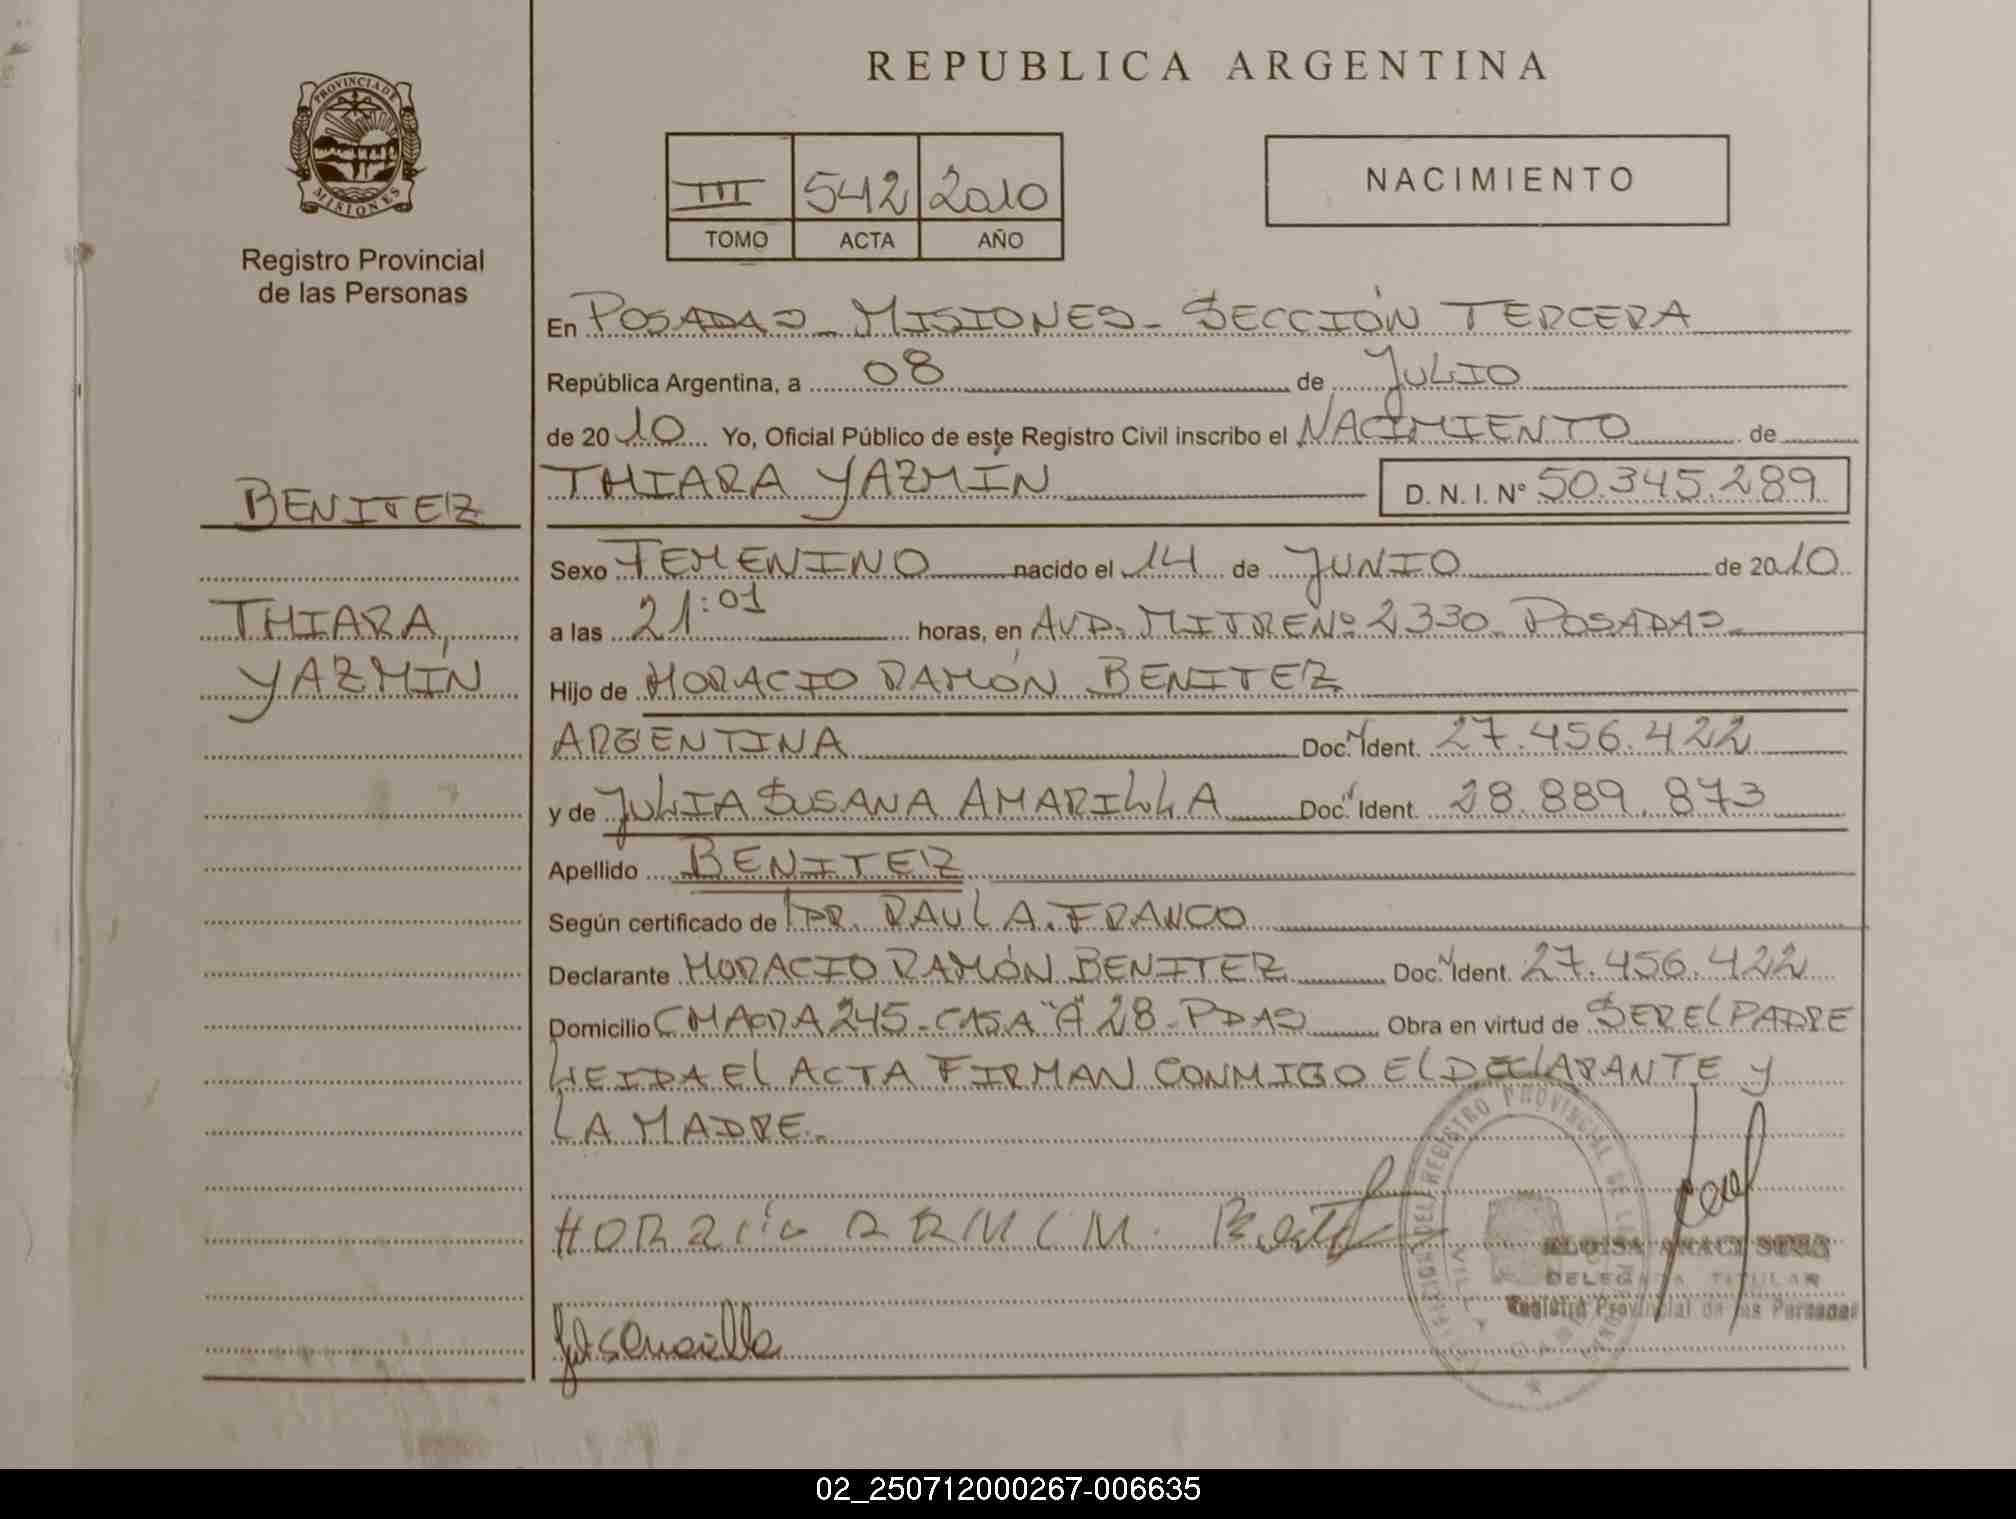 REPUBLICA ARGENTINA
PROVINCIA DE
MISIONES
Registro Provincial
de las Personas
III 542 2010
TOMO ACTA AÑO
NACIMIENTO
En POSADAS - MISIONES - SECCIÓN TERCERA
República Argentina, a 08 de JULIO
de 2010 Yo, Oficial Público de este Registro Civil inscribo el NACIMIENTO de
THIARA YAZMIN D. N. I. Nº 50.345.289
BENITEZ
THIARA,
YAZMÍN
Sexo FEMENINO nacido el 14 de JUNIO de 2010
a las 21:01 horas, en AVD. MITRE Nº 2330 - POSADAS -
Hijo de HORACIO RAMÓN BENITEZ
ARGENTINA Doc. Ident. 27.456.422
y de JULIA SUSANA AMARILLA Doc. Ident. 28.889.873
Apellido BENITEZ
Según certificado de DR. RAUL A. FRANCO
Declarante HORACIO RAMÓN BENITEZ Doc. Ident. 27.456.422
Domicilio CHACRA 245 - CASA "A" 28 - PDAS Obra en virtud de SER EL PADRE
LEIDA EL ACTA FIRMAN CONMIGO EL DECLARANTE Y
LA MADRE.-
DELEGADA TITULAR
Registro Provincial de las Personas
02_250712000267-006635